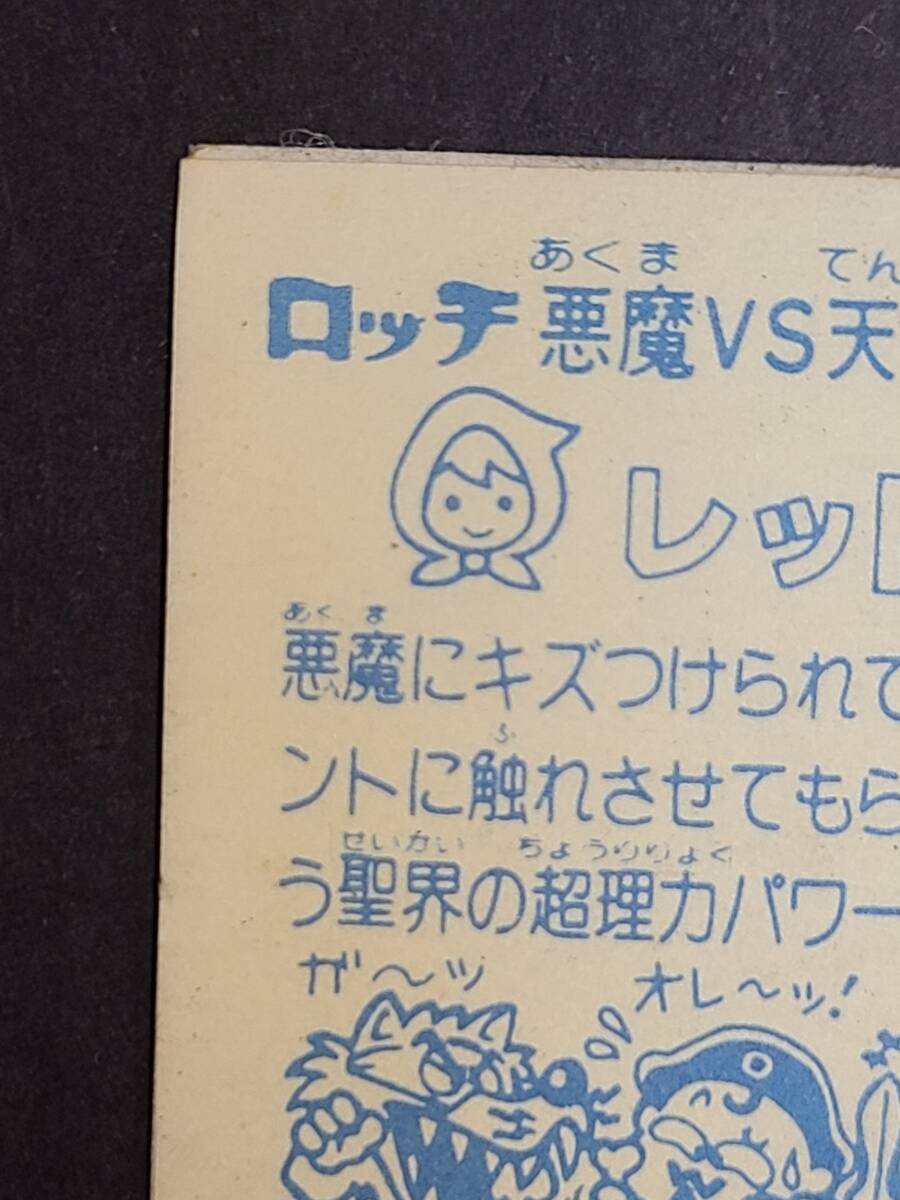 あくま てん
ロッチ 悪魔VS天
レッ
あくま
悪魔にキズつけられて
ふ
ントに触れさせてもら
せいかい ちょうりりょく
う聖界の超理力パワー
ガ〜ッ オレ〜ッ!